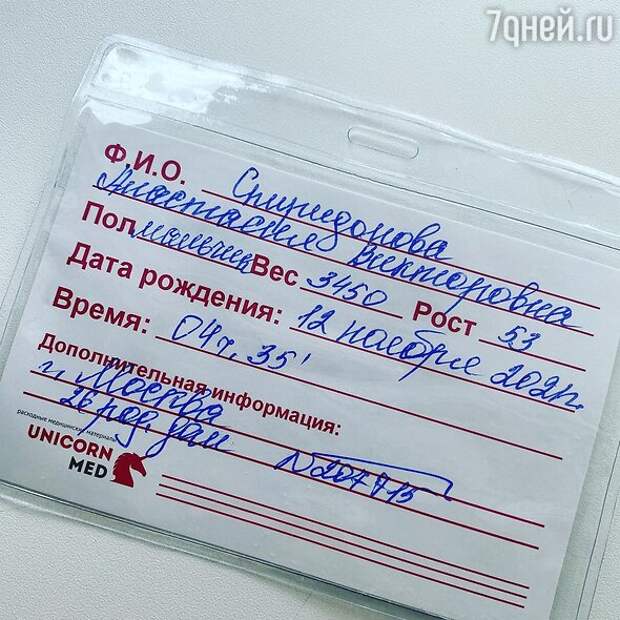 7дней.ru
Ф.И.О. Спиридонова
Анастасия Викторовна
Пол мальчик Вес 3450 Рост 53
Дата рождения: 12 ноября 2021г.
Время: 04ч. 35'
Дополнительная информация:
г. Москва
26 род. дом N207715
расходные медицинские материалы
UNICORN
MED